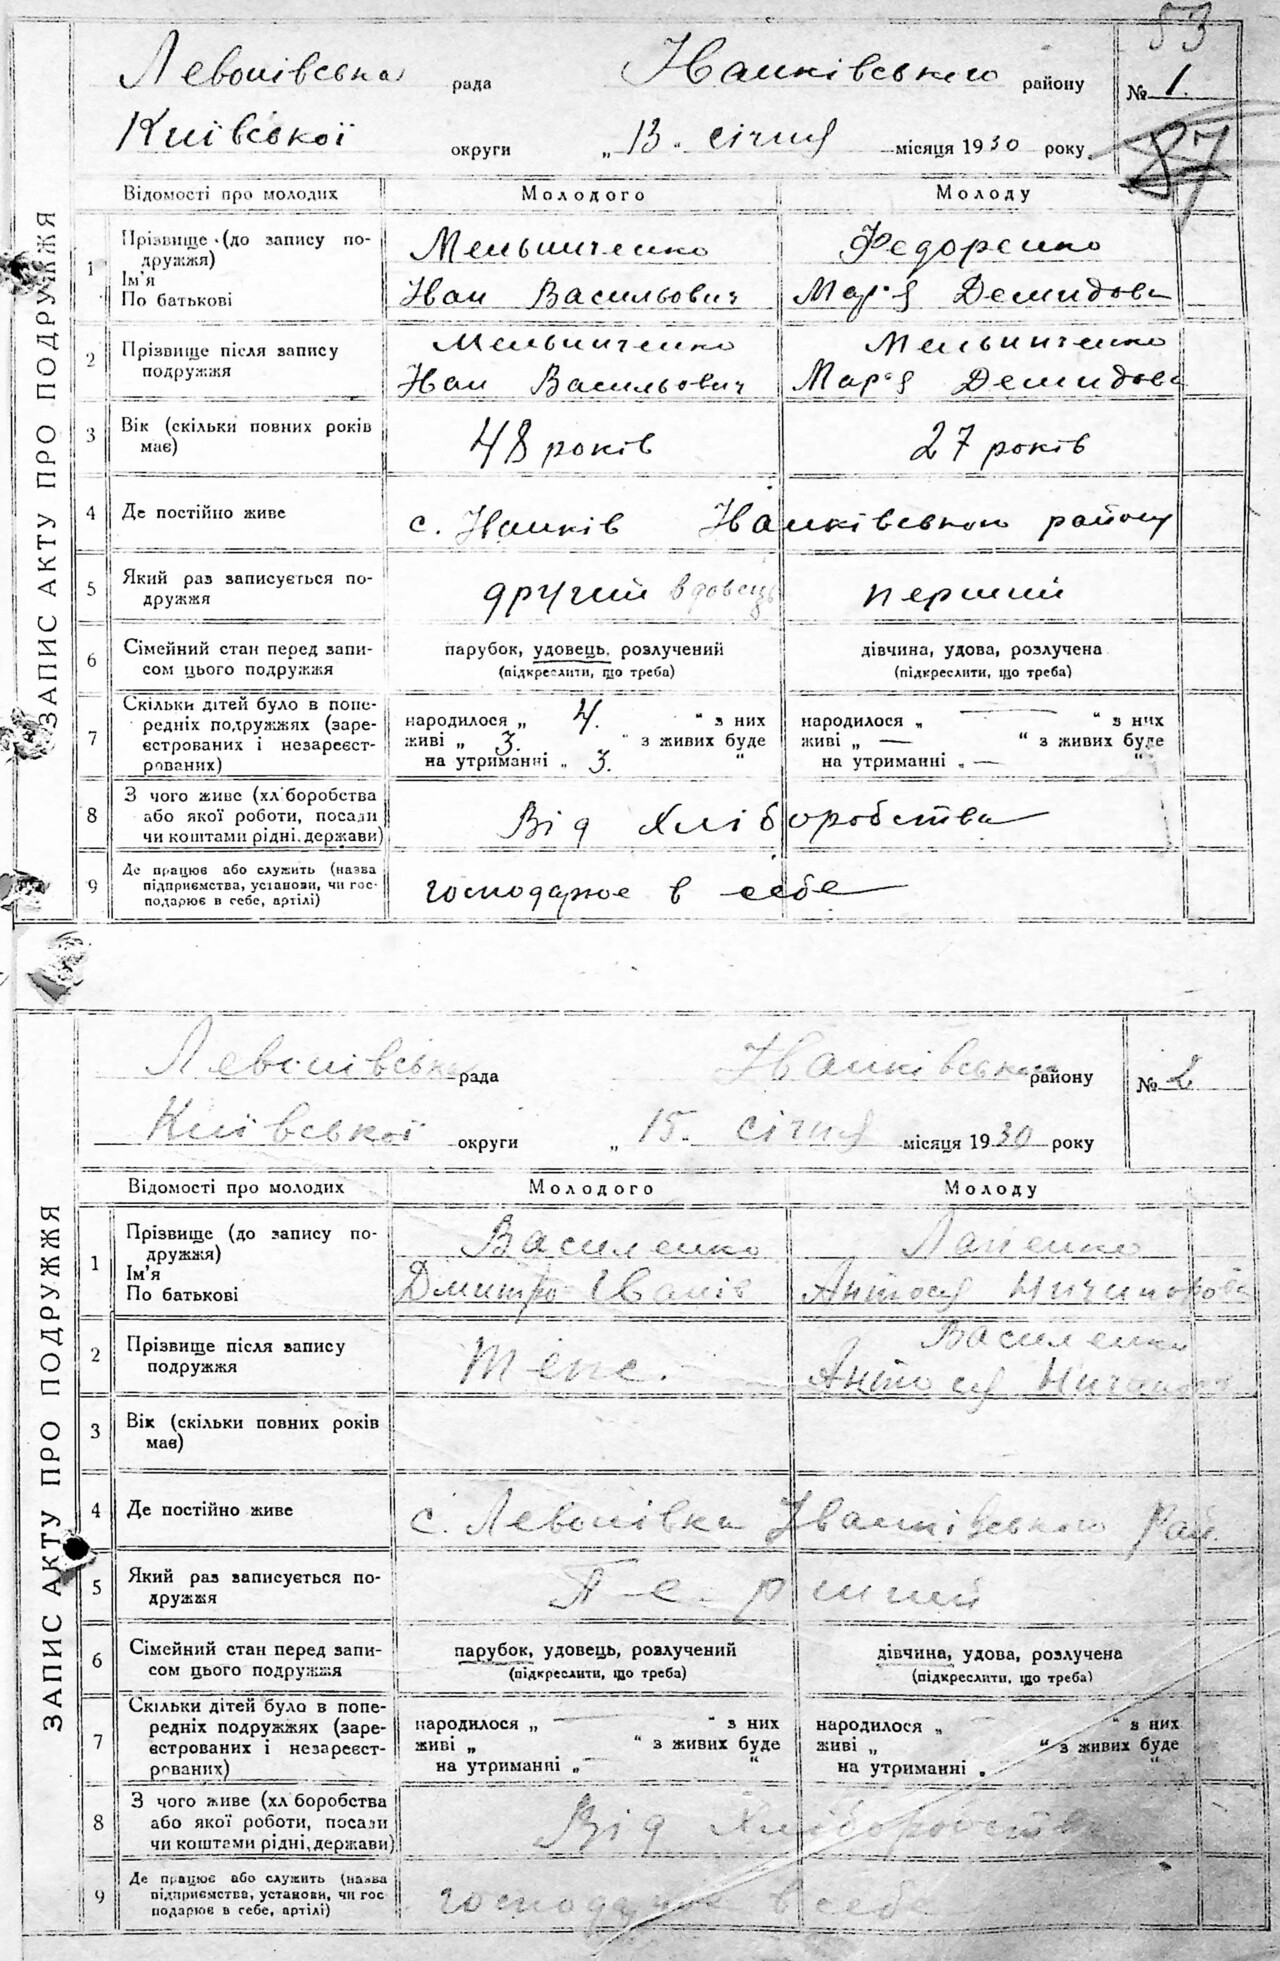 53
Левонівська рада Іванківського району № 1.
Київської округи „ 13 " січня місяця 1930 року
87
ЗАПИС АКТУ ПРО ПОДРУЖЖЯ
Відомості про молодих Молодого Молоду
1 Прізвище (до запису по-
дружжя)
Ім'я
По батькові
Мельниченко Федоренко
Іван Васильович Мар'я Демидова
2 Прізвище після запису
подружжя
Мельниченко Мельниченко
Іван Васильович Мар'я Демидова
3 Вік (скільки повних років
має)
48 років 27 років
4 Де постійно живе с. Іванків Іванківського району
5 Який раз записується по-
дружжя
другий вдовець перший
6 Сімейний стан перед запи-
сом цього подружжя
парубок, удовець, розлучений дівчина, удова, розлучена
(підкреслити, що треба) (підкреслити, що треба)
7 Скільки дітей було в попе-
редніх подружжях (заре-
єстрованих і незареєст-
рованих)
народилося „ 4. " з них народилося „ — " з них
живі „ 3. " з живих буде живі „ — " з живих буде
на утриманні „ 3. " на утриманні „ — "
8 З чого живе (хліборобства
або якої роботи, посади
чи коштами рідні, держави)
Від хліборобства
9 Де працює або служить (назва
підприємства, установи, чи гос-
подарює в себе, артілі)
господарює в себе
Левонівська рада Іванківського району № 2
Київської округи „ 15. січня місяця 1930 року
ЗАПИС АКТУ ПРО ПОДРУЖЖЯ
Відомості про молодих Молодого Молоду
1 Прізвище (до запису по-
дружжя)
Ім'я
По батькові
Василенко Лапенко
Дмитро Іванів Антося Ничипорова
2 Прізвище після запису
подружжя
теж. Василенко
Антося
3 Вік (скільки повних років
має)
4 Де постійно живе с. Левонівка Іванківського рай
5 Який раз записується по-
дружжя
Перший
6 Сімейний стан перед запи-
сом цього подружжя
парубок, удовець, розлучений дівчина, удова, розлучена
(підкреслити, що треба) (підкреслити, що треба)
7 Скільки дітей було в попе-
редніх подружжях (заре-
єстрованих і незареєст-
рованих)
народилося „ — " з них народилося „ — " з них
живі „ " з живих буде живі „ " з живих буде
на утриманні „ " на утриманні „ "
8 З чого живе (хліборобства
або якої роботи, посади
чи коштами рідні, держави)
Від хліборобства
9 Де працює або служить (назва
підприємства, установи, чи гос
подарює в себе, артілі)
господарює в себе